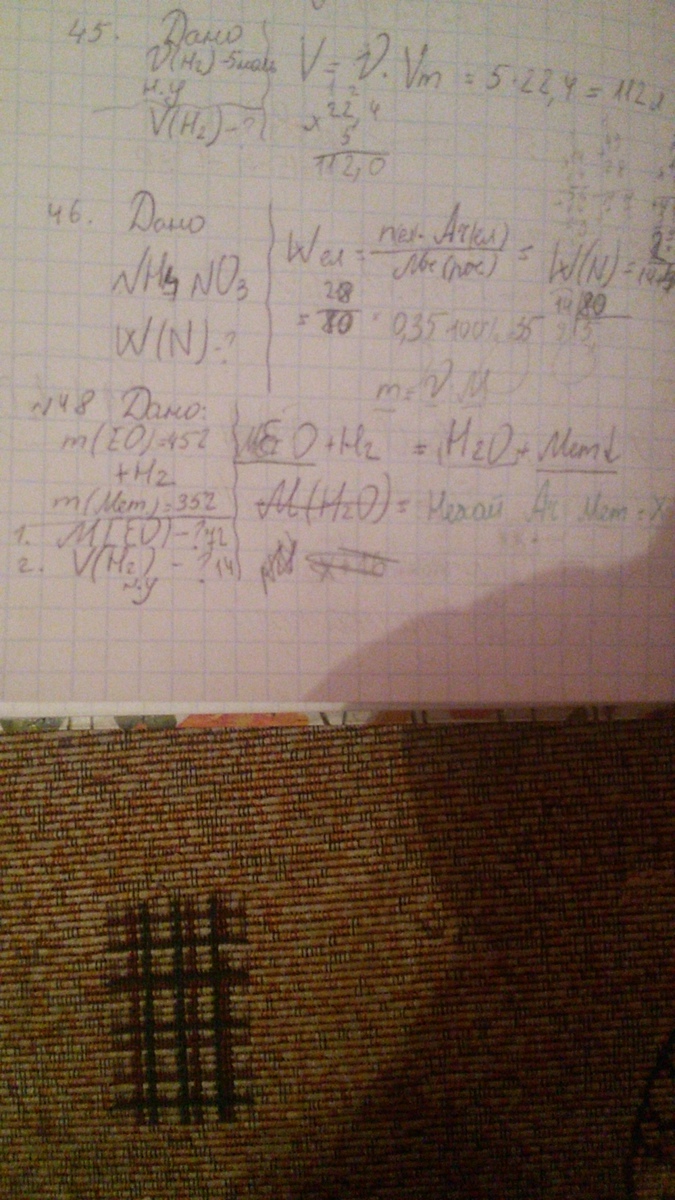 45. Дано
ν(H₂)-5моль
н.у
V(H₂)-?
V = ν·Vm = 5·22,4 = 112л
1 2
×22,4
5
112,0
46. Дано
NH4 NO3
W(N)-?
Wел = n(ел)·Ar(ел) / Mr(рос) = W(N) =
= 28/80 = 0,35·100% 35
m=ν·M
№48 Дано:
m(EO)=45г
+H2
m(Mem)=35г
1. M(EO)-?72
2. V(H2) - ? 14
н.у
O + H2 = H2O + Mem↓
M(H2O) = Нехай Ar Mem = X